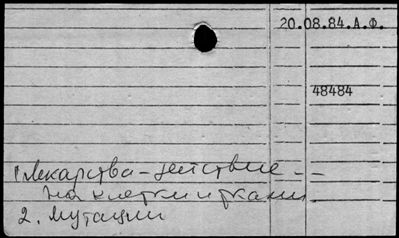 20.08.84.А.Ф.
48484
1 Лекарства – действие --
на клетки и ткани
2. Мутации